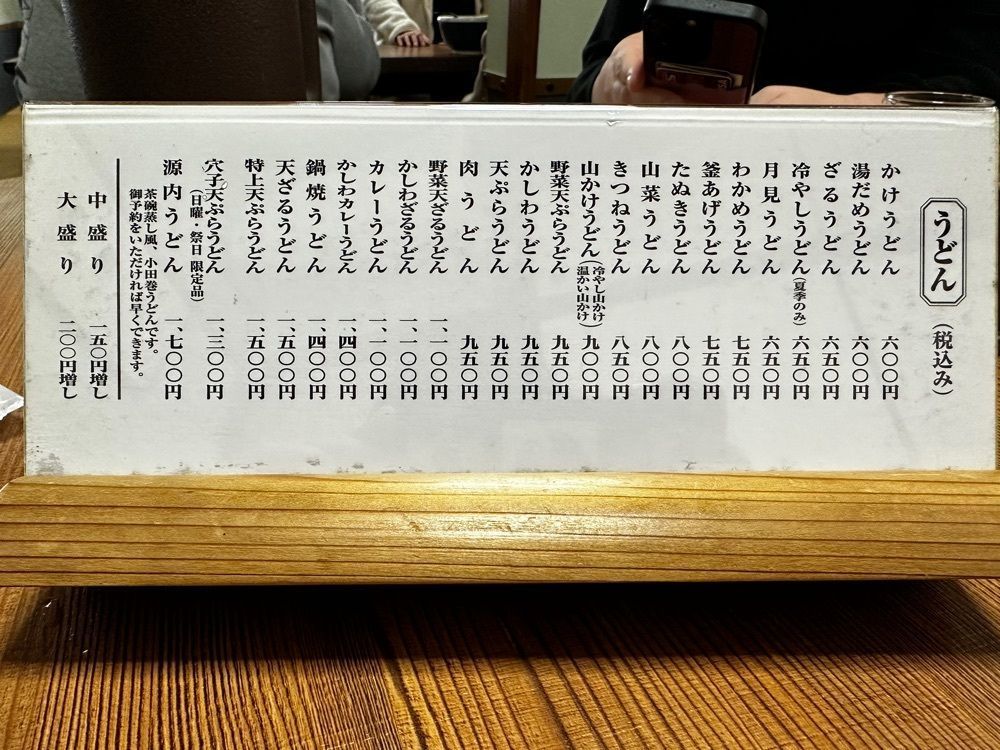 うどん（税込み）
かけうどん 六〇〇円
湯だめうどん 六〇〇円
ざるうどん 六五〇円
冷やしうどん（夏季のみ） 六五〇円
月見うどん 六五〇円
わかめうどん 七五〇円
釜あげうどん 七五〇円
たぬきうどん 八〇〇円
山菜うどん 八〇〇円
きつねうどん 八五〇円
山かけうどん（冷やし山かけ 温かい山かけ） 九〇〇円
野菜天ぷらうどん 九五〇円
かしわうどん 九五〇円
天ぷらうどん 九五〇円
肉うどん 九五〇円
野菜天ざるうどん 一、一〇〇円
かしわざるうどん 一、一〇〇円
カレーうどん 一、一〇〇円
かしわカレーうどん 一、四〇〇円
鍋焼うどん 一、四〇〇円
天ざるうどん 一、五〇〇円
特上天ぷらうどん 一、五〇〇円
穴子天ぷらうどん 一、三〇〇円
（日曜・祭日 限定品）
源内うどん 一、七〇〇円
茶碗蒸し風、小田巻うどんです。
御予約をいただければ早くできます。
中盛り 一五〇円増し
大盛り 二〇〇円増し